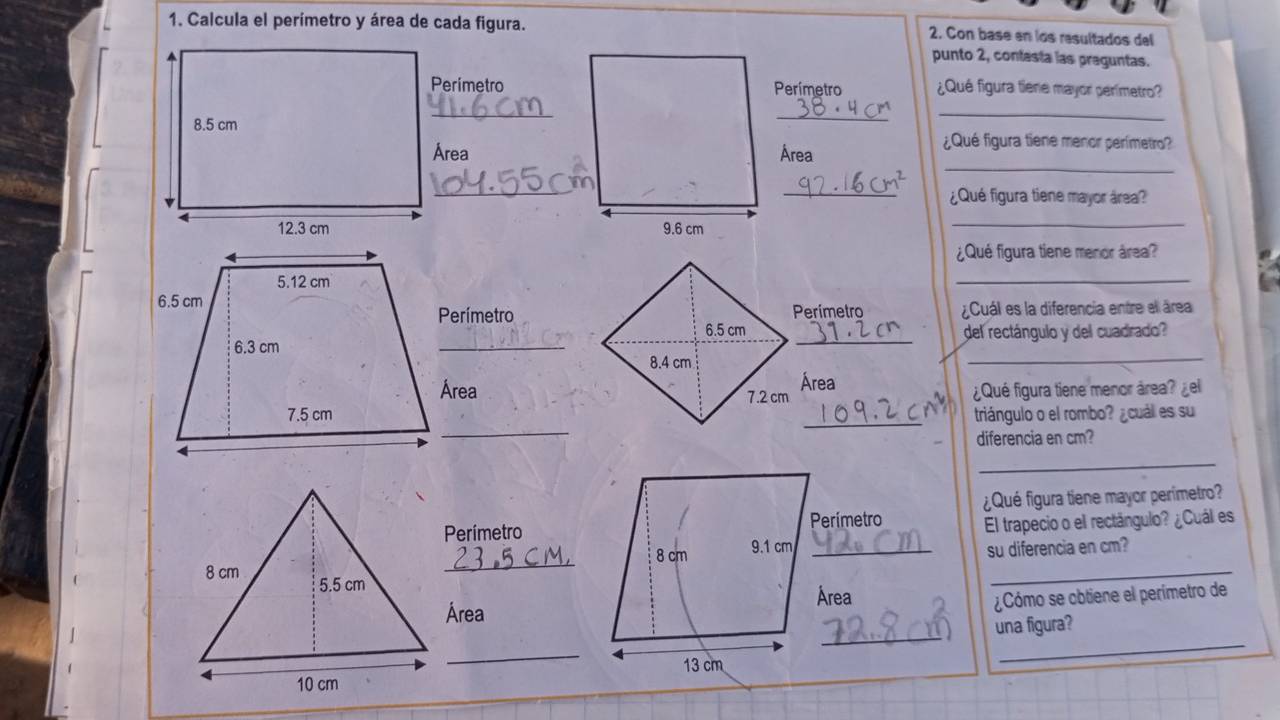 1. Calcula el perímetro y área de cada figura.
8.5 cm
12.3 cm
Perímetro
41.6 cm
Área
104.55 cm²
9.6 cm
Perímetro
38.4 cm
Área
92.16 cm²
5.12 cm
6.5 cm
6.3 cm
7.5 cm
Perímetro
Área
6.5 cm
8.4 cm
7.2 cm
Perímetro
Área
109.2 cm²
8 cm
5.5 cm
10 cm
Perímetro
23.5 cm.
Área
8 cm
9.1 cm
13 cm
Perímetro
42. cm
Área
72.8 cm²
2. Con base en los resultados del
punto 2, contesta las preguntas.
¿Qué figura tiene mayor perímetro?
¿Qué figura tiene menor perímetro?
¿Qué figura tiene mayor área?
¿Qué figura tiene menor área?
¿Cuál es la diferencia entre el área
del rectángulo y del cuadrado?
¿Qué figura tiene menor área? ¿el
triángulo o el rombo? ¿cuál es su
diferencia en cm?
¿Qué figura tiene mayor perímetro?
El trapecio o el rectángulo? ¿Cuál es
su diferencia en cm?
¿Cómo se obtiene el perímetro de
una figura?